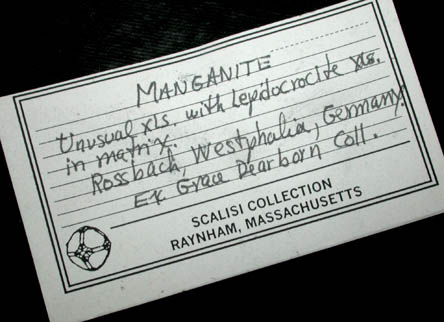 MANGANITE
Unusual xls. with Lepidocrocite xls.
in matrix.
Rossbach, Westphalia, Germany.
Ex. Grace Dearborn Coll.
SCALISI COLLECTION
RAYNHAM, MASSACHUSETTS